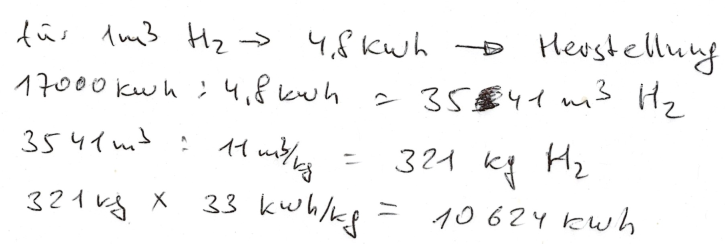 für 1m³ H₂ → 4,8 kwh → Herstellung
17000 kwh : 4,8 kwh = 3541 m³ H₂
3541 m³ : 11 m³/kg = 321 kg H₂
321 kg × 33 kwh/kg = 10624 kwh